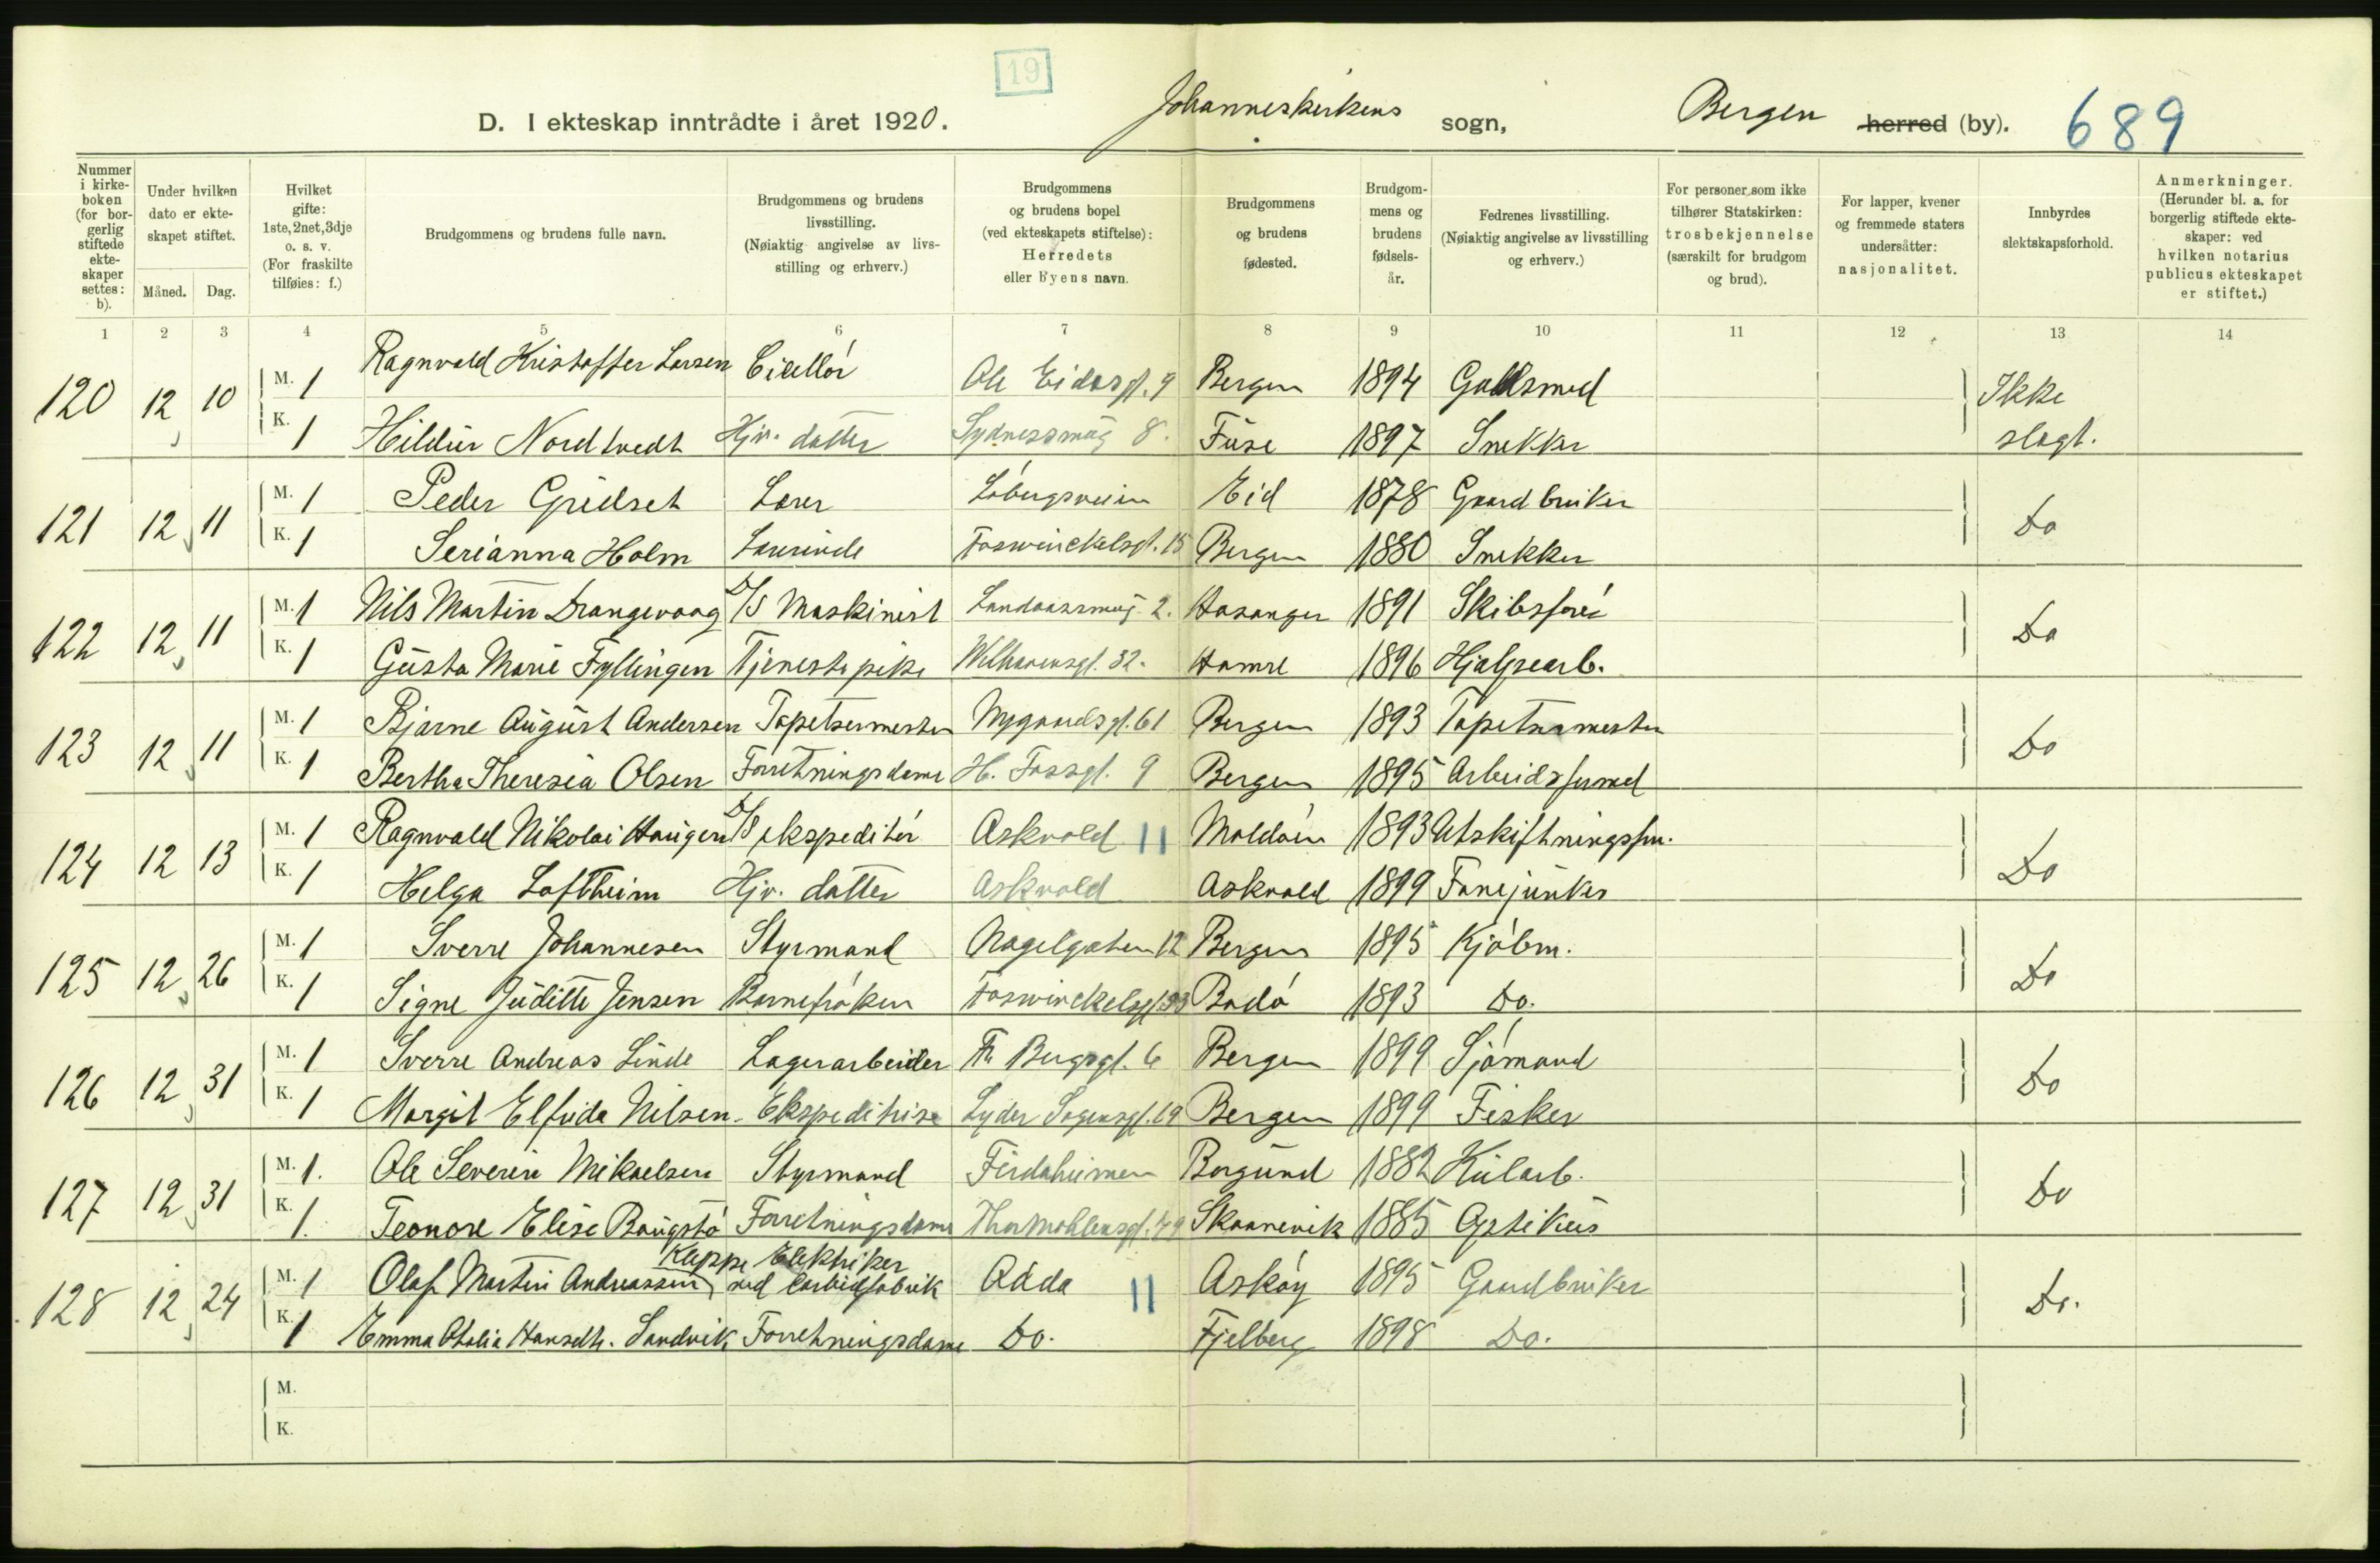 19
D. I ekteskap inntrådte i året 1920. Johanneskirkens sogn, Bergen herred (by). 689
Nummer i kirkeboken (for borgerlig stiftede ekteskaper settes: b).
Under hvilken dato er ekteskapet stiftet.
Måned. Dag.
Hvilket gifte: 1ste, 2net, 3dje o. s. v. (For fraskilte tilføies: f.)
Brudgommens og brudens fulle navn.
Brudgommens og brudens livsstilling. (Nøiaktig angivelse av livsstilling og erhverv.)
Brudgommens og brudens bopel (ved ekteskapets stiftelse): Herredets eller byens navn.
Brudgommens og brudens fødested.
Brudgommens og brudens fødselsår.
Fedrenes livsstilling. (Nøiaktig angivelse av livsstilling og erhverv.)
For personer som ikke tilhører Statskirken: trosbekjennelse (særskilt for brudgom og brud).
For lapper, kvener og fremmede staters undersåtter: nasjonalitet.
Innbyrdes slektskapsforhold.
Anmerkninger. (Herunder bl. a. for borgerlig stiftede ekteskaper: ved hvilken notarius publicus ekteskapet er stiftet.)
1 2 3 4 5 6 7 8 9 10 11 12 13 14
120 12 10 M. 1 Ragnvald Kristoffer Larsen Ole Eidesgt. 9 Bergen 1894 Gullsmed Ikke
K. 1 Hildur Nordtvedt Hjv. datter Sydnessmug 8. Fuse 1897 Snekker slegt.
121 12 11 M. 1 Peder Gridset Lærer Løbergsveien Eid 1878 Gaardbruker Do
K. 1 Serianna Holm Lærerinde Foswinckelsgt. 15 Bergen 1880 Snekker
122 12 11 M. 1 Nils Martin Drangevaag D/S Maskinist Landaassmug 2. Hosanger 1891 Skibsfører Do
K. 1 Gusta Marie Fyllingen Tjenestepike Welhavensgt. 32. Hamre 1896 Hjælpearb.
123 12 11 M. 1 Bjarne August Andersen Tapetsermester Nygaardsgt. 61 Bergen 1893 Tapetsermester Do
K. 1 Bertha Theresia Olsen Forretningsdame H. Fossgt. 9 Bergen 1895 Arbeidsformd
124 12 13 M. 1 Ragnvald Nikolai Haugen D/S ekspeditør Askvold 11 Moldøen 1893 Utskiftningsfm. Do
K. 1 Helga Loftheim Hjv. datter Askvold Askvold 1899 Fanejunker
125 12 26 M. 1 Sverre Johannesen Styrmand Nagelgaten 12 Bergen 1895 Kjøbm. Do
K. 1 Signe Juditte Jensen Barnefrøken Foswinckelsgt. 33 Bodø 1893 Do.
126 12 31 M. 1 Sverre Andreas Linde Lagerarbeider Fr. Bergsgt. 6 Bergen 1899 Sjømand Do
K. 1 Margit Elfrida Nilsen Ekspeditrise Lyder Sagensgt. 19 Bergen 1899 Fisker
127 12 31 M. 1. Ole Severin Mikaelsen Styrmand Firdaheimen Borgund 1882 Kularb. Do
K. 1. Teonore Elise Baugstø Forretningsdame Thormøhlensgt. 49 Skaanevik 1885 Optikus
128 12 24 M. 1 Olaf Martin Andreassen Kleppe Elektriker ved Carbidfabrik Odda 11 Askøy 1895 Gaardbruker Do.
K. 1 Emma Otalia Hansdtr. Sandvik Forretningsdame Do. Fjelberg 1898 Do.
M.
K.